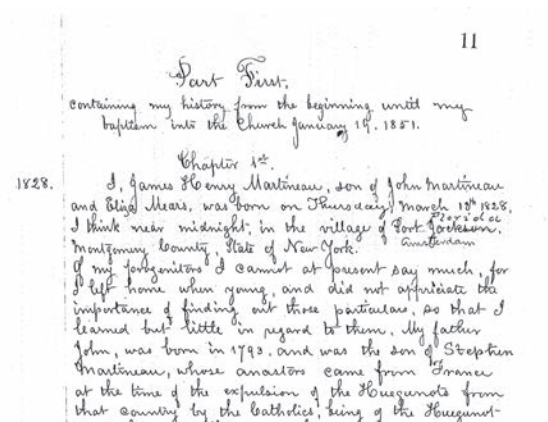 11
Part First,
containing my history from the beginning until my
baptism into the Church January 19. 1851.
Chapter 1st.
1828. I, James Henry Martineau, son of John Martineau
and Eliza Mears, was born on Thursday, March 13th 1828,
I think near midnight, in the village of Port Jackson,
Florida or
Amsterdam
Montgomery County, State of New York.
Of my progenitors I cannot at present say much, for
I left home when young, and did not appriciate the
importance of finding out those particulars, so that I
learned but little in regard to them. My father
John, was born in 1793, and was the son of Stephen
Martineau, whose ancestors came from France
at the time of the expulsion of the Huegunots from
that country by the Catholics, being of the Huegunot-